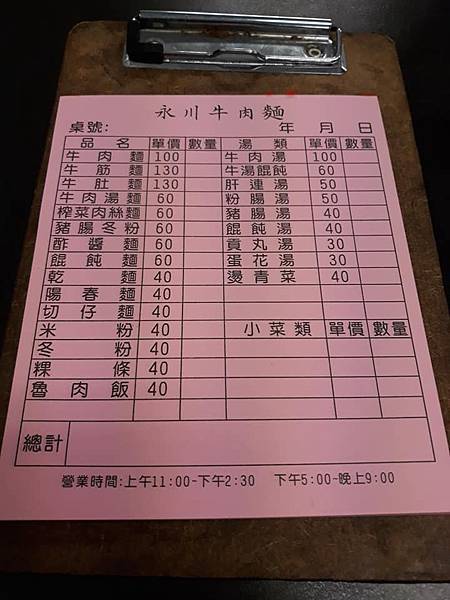 永川牛肉麵
桌號: 年 月 日
品名 單價 數量 湯類 單價 數量
牛肉麵 100 牛肉湯 100
牛筋麵 130 牛湯餛飩 60
牛肚麵 130 肝連湯 50
牛肉湯麵 60 粉腸湯 50
榨菜肉絲麵 60 豬腸湯 40
豬腸冬粉 60 餛飩湯 40
酢醬麵 60 貢丸湯 30
餛飩麵 60 蛋花湯 30
乾麵 40 燙青菜 40
陽春麵 40
切仔麵 40
米粉 40 小菜類 單價 數量
冬粉 40
粿條 40
魯肉飯 40
總計
營業時間:上午11:00-下午2:30 下午5:00-晚上9:00